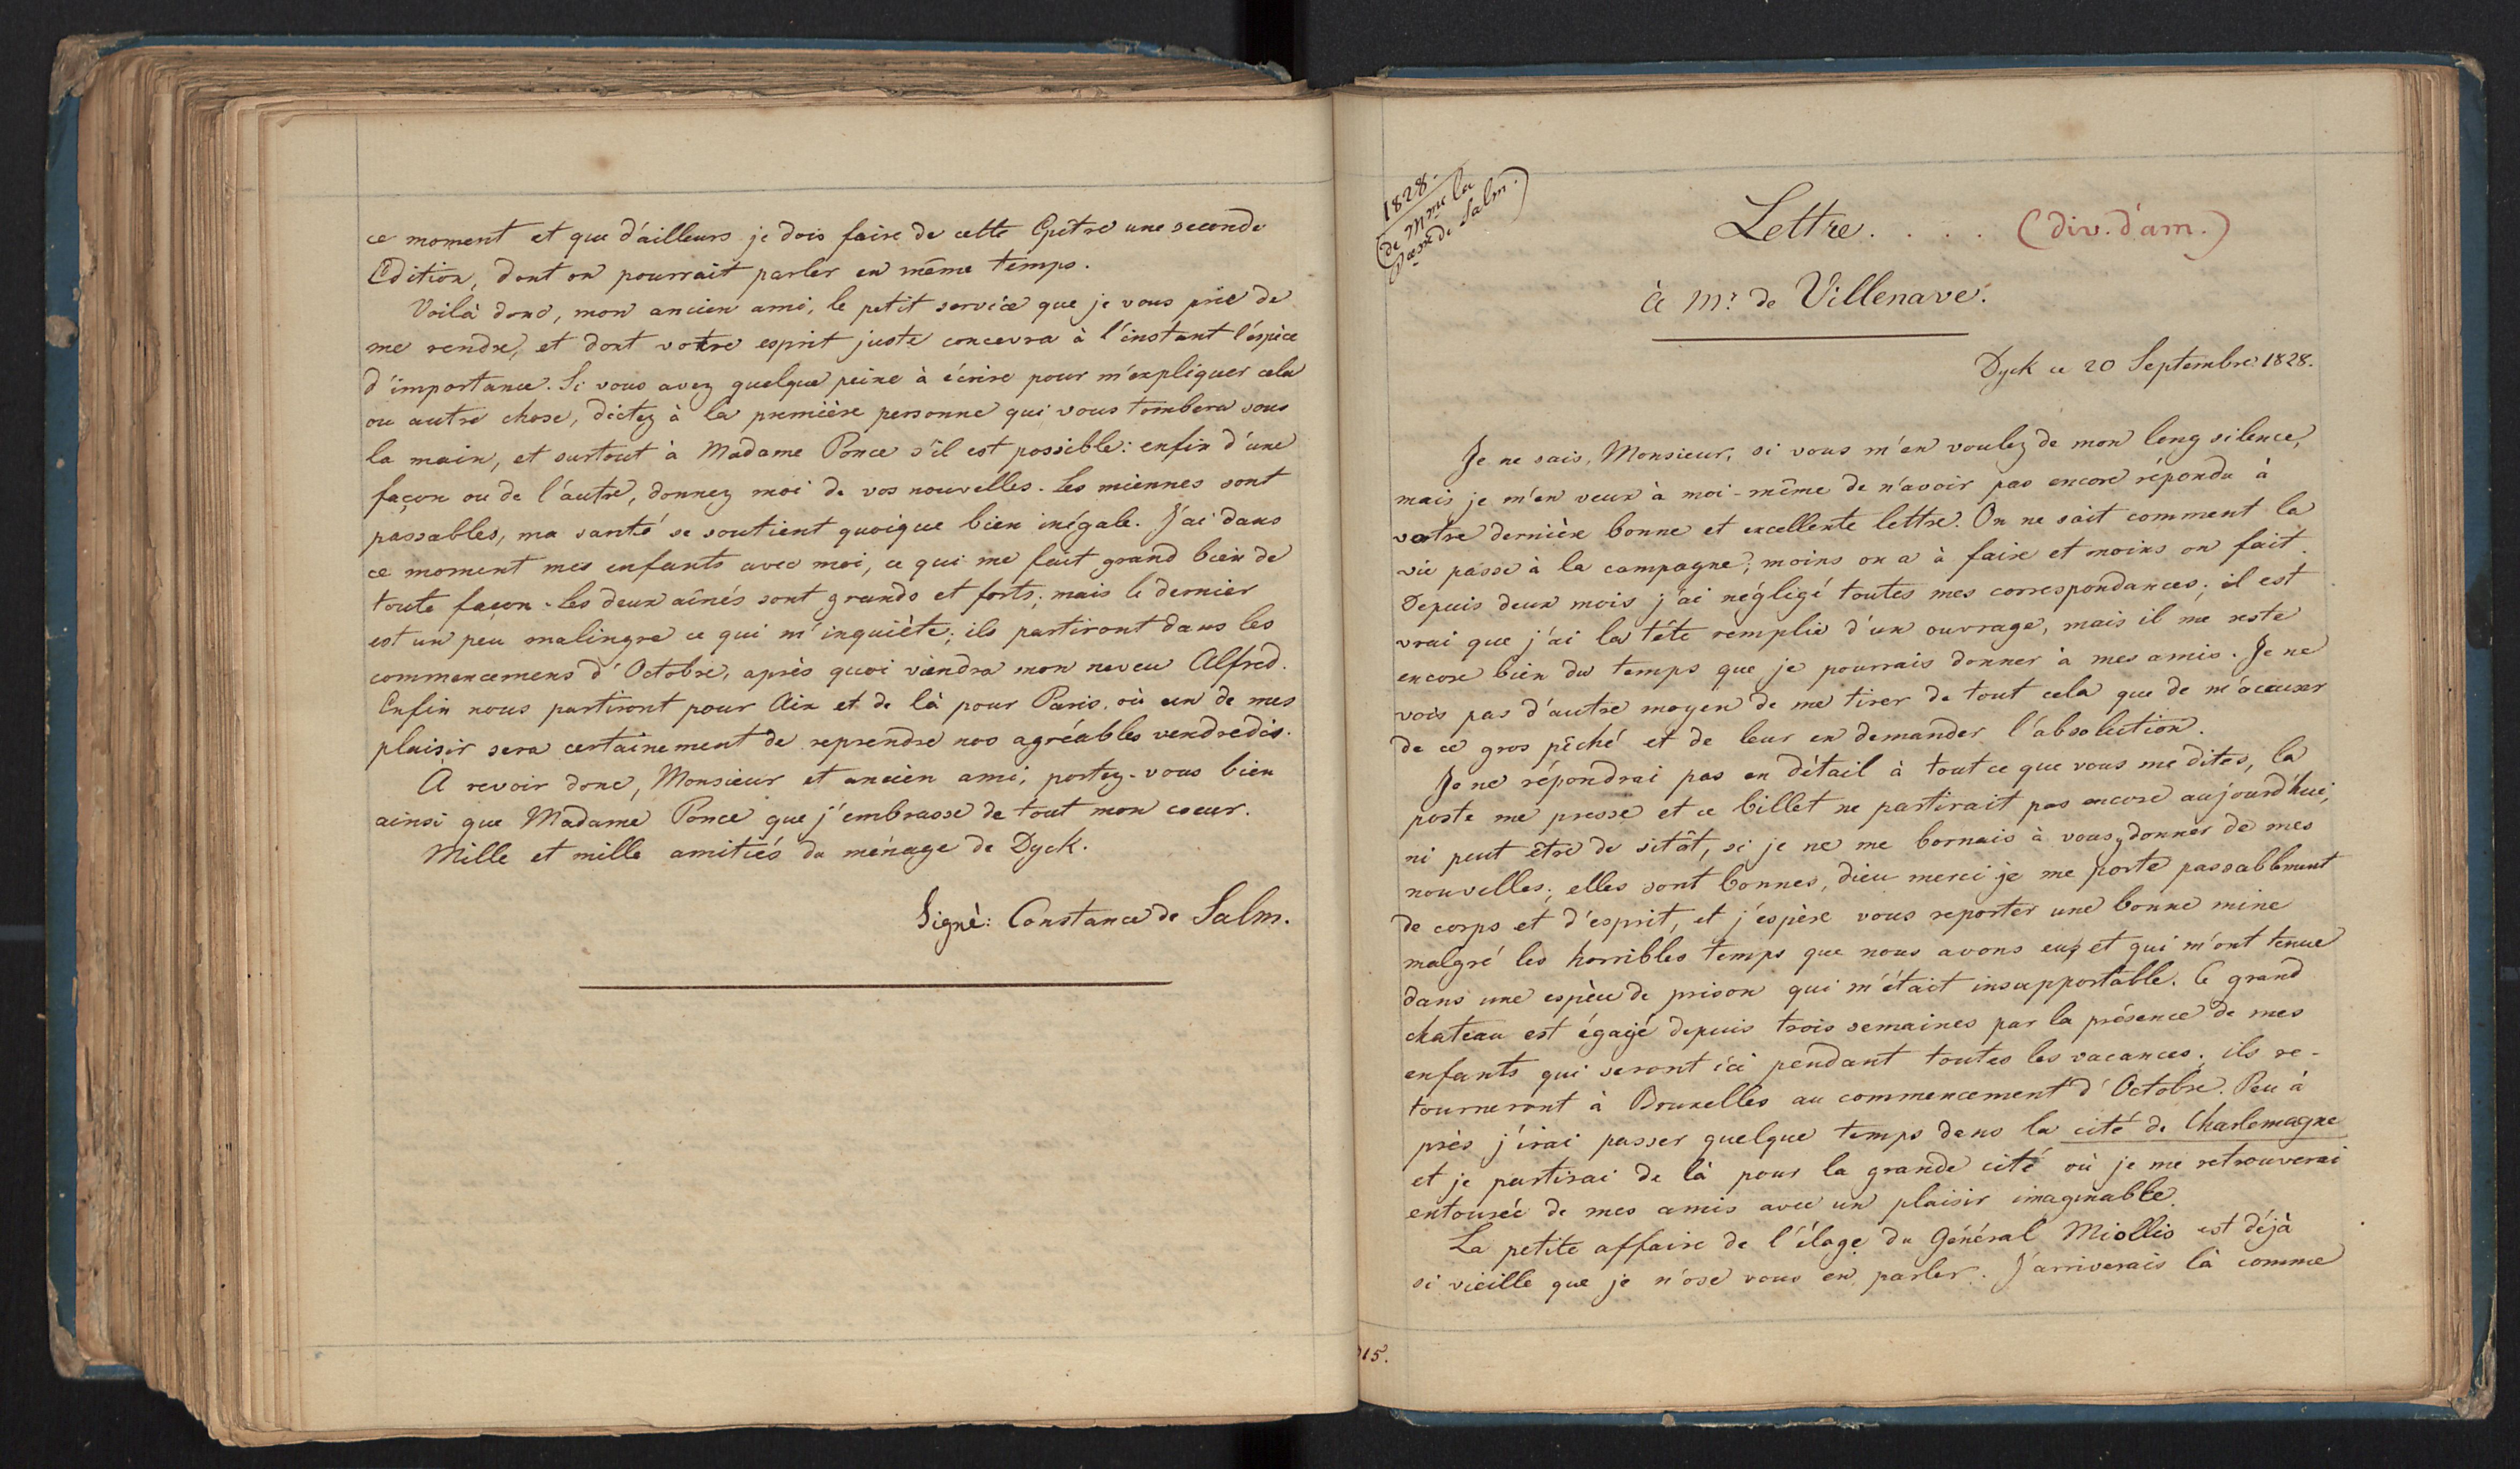 ce moment et que d'ailleurs je dois faire de cette Epitre une seconde
Edition, dont on pourrait parler en même temps.
Voilà donc, mon ancien ami, le petit service que je vous prie de
me rendre, et dont votre esprit juste concevra à l'instant l'éspèce
d'importance. Si vous avez quelque peine à écrire pour m'expliquer cela
ou autre chose, dictez à la première personne qui vous tombera sous
la main, et surtout à Madame Ponce s'il est possible: enfin d'une
façon ou de l'autre, donnez moi de vos nouvelles. Les miennes sont
passables, ma santé se soutient quoique bien inégale. J'ai dans
ce moment mes enfants avec moi, ce qui me fait grand bien de
toute façon. Les deux aînés sont grands et forts; mais le dernier
est un peu malingre ce qui m'inquiète; ils partiront dans les
commencemens d'Octobre, après quoi viendra mon neveu Alfred.
Enfin nous partiront pour Aix et de là pour Paris, où un de mes
plaisir sera certainement de reprendre nos agréables vendredis.
A revoir donc, Monsieur et ancien ami, portez-vous bien
ainsi que Madame Ponce que j'embrasse de tout mon coeur.
Mille et mille amitiés du ménage de Dyck.
Signé: Constance de Salm.
1828.
(de Mme la
Pcesse de Salm.)
Lettre. . . . (div. d'am.)
à Mr. de Villenave.
Dyck ce 20 Septembre 1828.
Je ne sais, Monsieur, si vous m'en voulez de mon long silence,
mais je m'en veux à moi-même de n'avoir pas encore répondu à
votre dernière bonne et excellente lettre. On ne sait comment la
vie passe à la campagne; moins on a à faire et moins on fait.
Depuis deux mois j'ai négligé toutes mes correspondances; il est
vrai que j'ai la tête remplie d'un ouvrage, mais il me reste
encore bien du temps que je pourrais donner à mes amis. Je ne
vois pas d'autre moyen de me tirer de tout cela que de m'accuser
de ce gros pêché et de leur en demander l'absolution.
Je ne répondrai pas en détail à tout ce que vous me dites, la
poste me presse et ce billet ne partirait pas encore aujourd'hui,
ni peut être de sitôt, si je ne me bornais à vous donner de mes
nouvelles; elles sont bonnes, dieu merci je me porte passablement
de corps et d'esprit, et j'espère vous reporter une bonne mine
malgré les horribles temps que nous avons eus et qui m'ont tenue
dans une espèce de prison qui m'était insupportable. Ce grand
chateau est égayé depuis trois semaines par la présence de mes
enfants qui seront ici pendant toutes les vacances; ils re-
tourneront à Bruxelles au commencement d'Octobre. Peu à
près j'irai passer quelque temps dans la cité de Charlemagne
et je partirai de là pour la grande cité où je me retrouverai
entourée de mes amis avec un plaisir imaginable.
La petite affaire de l'éloge du Général Miollis est déjà
si vieille que je n'ose vous en parler. J'arriverais là comme
15.